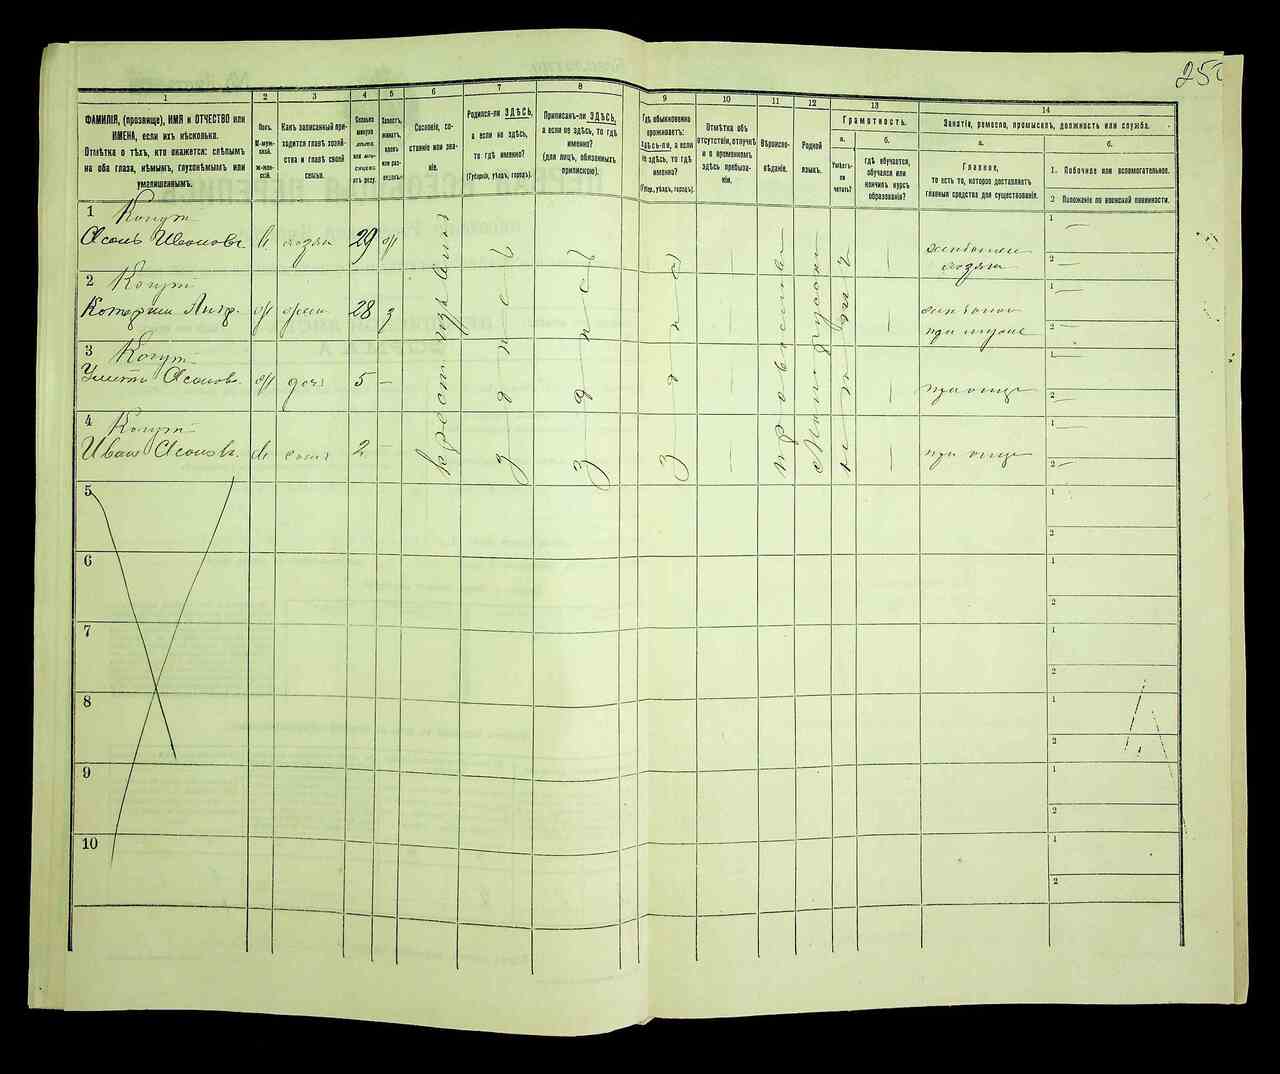 250
1
2
3
4
5
6
7
8
9
10
11
12
13
14
ФАМИЛІЯ, (прозвище), ИМЯ и ОТЧЕСТВО или
ИМЕНА, если ихъ нѣсколько.
Отмѣтка о тѣхъ, кто окажется: слѣпымъ
на оба глаза, нѣмымъ, глухонѣмымъ или
умалишеннымъ.
Полъ.
М-муж-
ской.
Ж-жен-
скій.
Какъ записанный при-
ходится главѣ хозяй-
ства и главѣ своей
семьи.
Сколько
минуло
лѣтъ
или мѣ-
сяцевъ
отъ роду.
Холостъ,
женатъ,
вдовъ
или раз-
веденъ.
Сословіе, со-
стояніе или зва-
ніе.
Родился-ли ЗДѢСЬ,
а если не здѣсь,
то гдѣ именно?
(Губернія, уѣздъ, городъ).
Приписанъ-ли ЗДѢСЬ,
а если не здѣсь, то гдѣ
именно?
(для лицъ, обязанныхъ
припискою).
Гдѣ обыкновенно
проживаетъ:
здѣсь-ли, а если
не здѣсь, то гдѣ
именно?
(Губер., уѣздъ, городъ).
Отмѣтка объ
отсутствіи, отлучкѣ
и о временномъ
здѣсь пребыва-
ніи.
Вѣроиспо-
вѣданіе.
Родной
языкъ.
Грамотность.
а.
Умѣетъ-
ли
читать?
б.
гдѣ обучается,
обучался или
кончилъ курсъ
образованія?
Занятіе, ремесло, промыселъ, должность или служба.
а.
Главное,
то есть то, которое доставляетъ
главныя средства для существованія.
б.
1. Побочное или вспомогательное.
2 Положеніе по воинской повинности.
1
Когут
Ивановъ
М
хозяин
29
ж
—
—
хозяин
1 —
2 —
2
Когут
ж
жена
28
з
—
—
при муже
1 —
2 —
3
Когут
ж
дочь
5
—
—
—
при отце
1 —
2 —
4
Когут
Иван
М
сынъ
2
—
—
при отце
1 —
2 —
здесь
здесь
здесь
православн
Малорусский
нет
5
1
2
6
1
2
7
1
2
8
1
2
9
1
2
10
1
2